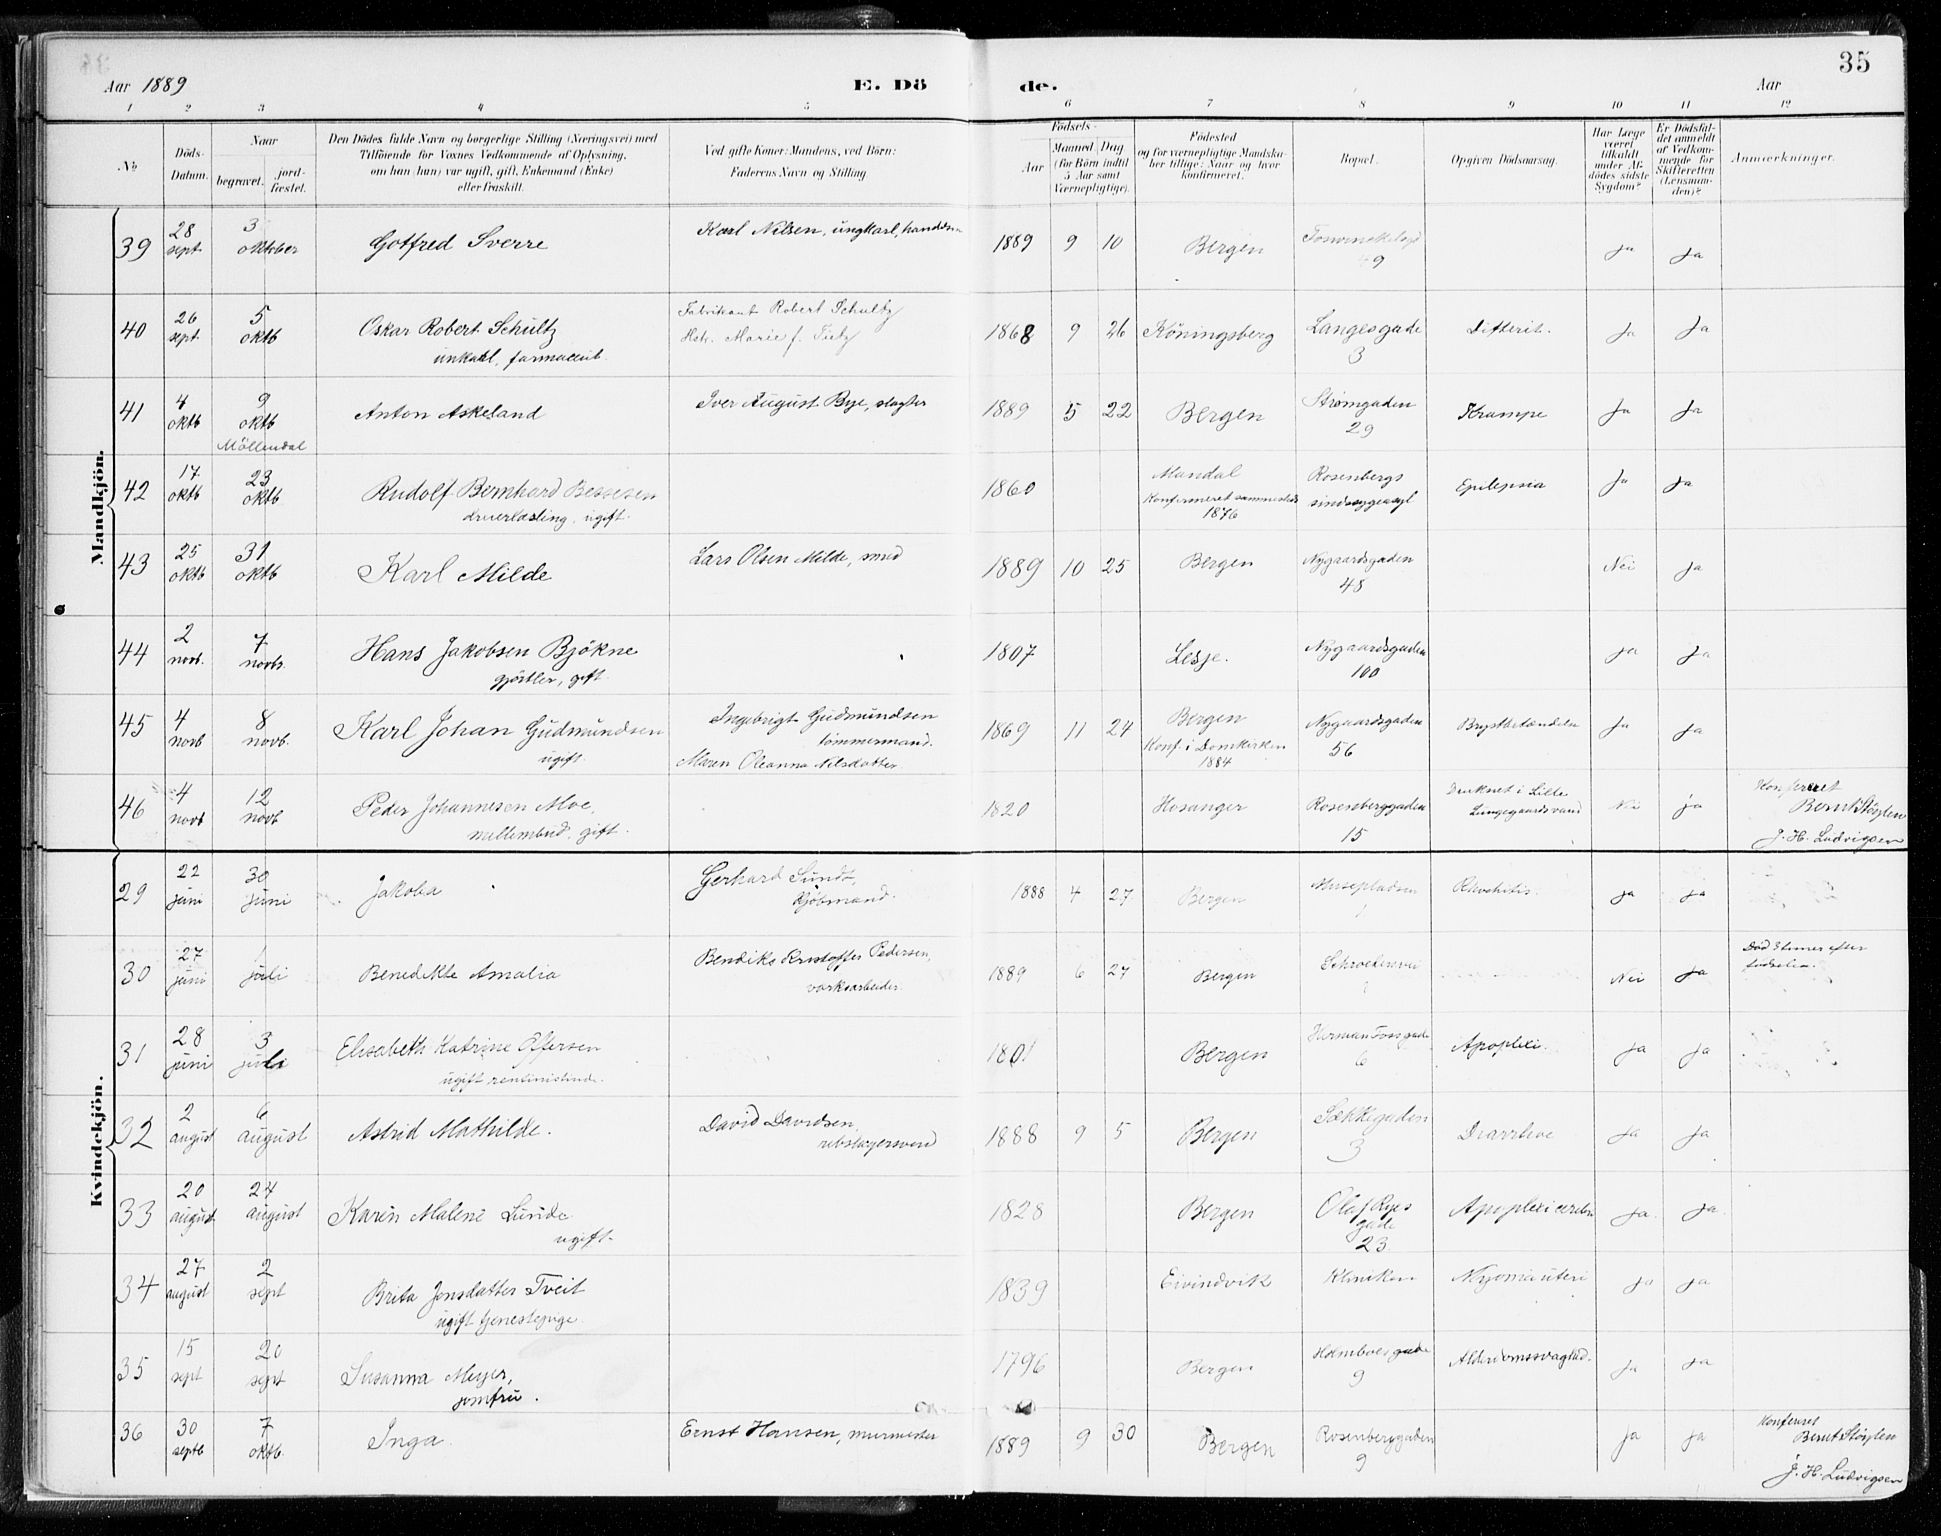 35
Aar 1889 E. Dö de. Aar
1 2 3 4 5 6 7 8 9 10 11 12
No.
Döds-Datum.
Naar
begravet. jordfæstet.
Den Dödes fulde Navn og borgerlige Stilling (Næringsvei) med
Tilföiende for Voxnes Vedkommende af Oplysning,
om han (hun) var ugift, gift, Enkemand (Enke)
eller fraskilt.
Ved gifte Koner: Mandens, ved Börn:
Faderens Navn og Stilling
Födsels-
Aar Maaned Dag
(for Börn indtil
5 Aar samt
Værnepligtige).
Födested
og for værnepligtige Mandskaber tillige: Naar og hvor
konfirmeret.
Bopæl.
Opgiven Dödsaarsag.
Har Læge
været
tilkaldt
under Afdödes sidste
Sygdom?
Er Dödsfaldet anmeldt
af Vedkommende for
Skifteretten
(Lensmanden)?
Anmærkninger.
Mandkjön.
39 28 sept. 3 oktober Gotfred Sverre Karl Nilsen, ungkarl, 1889 9 10 Bergen 49 ja ja
40 26 sept. 5 oktb Oskar Robert Schultz Fabrikant Robert Schultz 1868 9 26 Köningsberg Langesgade Difterit. Ja Ja
unkarl, farmaceut. Hstr. Marie f. Tietz 3
41 4 oktb 9 oktb Anton Askeland Iver August Bye, slagter 1889 5 22 Bergen Strömgaden 29 Krampe Ja Ja
Möllendal
42 17 oktb 23 oktb. Rudolf Bernhard Bessesen 1860 Mandal Rosenbergs Epilepsia Ja Ja
ugift. Konfirmeret sammesteds 1876 sindssygeasyl
43 25 oktb 31 oktb Karl Milde Lars Olsen Milde, smed 1889 10 25 Bergen Nygaardsgaden 48 Nei Ja
44 2 novb. 7 novbr. Hans Jakobsen Bjökne 1807 Lesje. Nygaardsgaden 100 ja Ja
gjörtler, gift.
45 4 novb 8 novb. Karl Johan Gudmundsen Ingebrigt Gudmundsen 1869 11 24 Bergen Nygaardsgaden Brystbetændelse Ja Ja
ugift. tömmermand. Konf. i Domkirken 56
Maren Oleanna Nilsdatter 1884
46 4 novb 12 novb Peder Johannesen Moe, 1820 Hosanger Rosenberggaden 15 Druknet i Lille Lungegaardsvand Nei ja Konfereret
gift. Bernt Stöylen
J. H. Ludvigsen
Kvindekjön.
29 22 juni 30 juni Jakoba Gerhard Sundt, Kjöbmand. 1888 4 27 Bergen Musepladsen Rhachitis. ja ja
30 27 juni 1 juli Benedikte Amalia Bendiks Kristoffer Pedersen, 1889 6 27 Bergen Nei ja Död 3 timer efter
verksarbeider. födselen.
31 28 juni 3 juli Elisabeth Katrine Offersen 1801 Bergen Herman Fossgade 6 Apoplexi. Ja Ja
ugift rentenistinde.
32 2 august 6 august Astrid Mathilde. David Davidsen, 1888 9 5 Bergen Sækkegaden 3 Diarrhoe Ja Ja
rebslagersvend
33 20 august 24 august Karen Malene Lunde 1828 Bergen Olaf Ryes gade 23 Apoplexi cerebri Ja. Ja.
ugift.
34 27 august 2 sept Brita Jonsdatter Tveit 1839 Eivindvik Kliniken Myoma uteri Ja Ja
ugift tjenestepige.
35 15 sept 20 sept Susanna Meyer, 1796 Bergen Holmboesgade 9 Alderdomssvaghed. Ja Ja
jomfru.
36 30 septb 7 oktb. Inga. Ernst Hansen, murmester 1889 9 30 Bergen Rosenberggaden 9 Ja Ja Konfereret
Bernt Stöylen
J. H. Ludvigsen